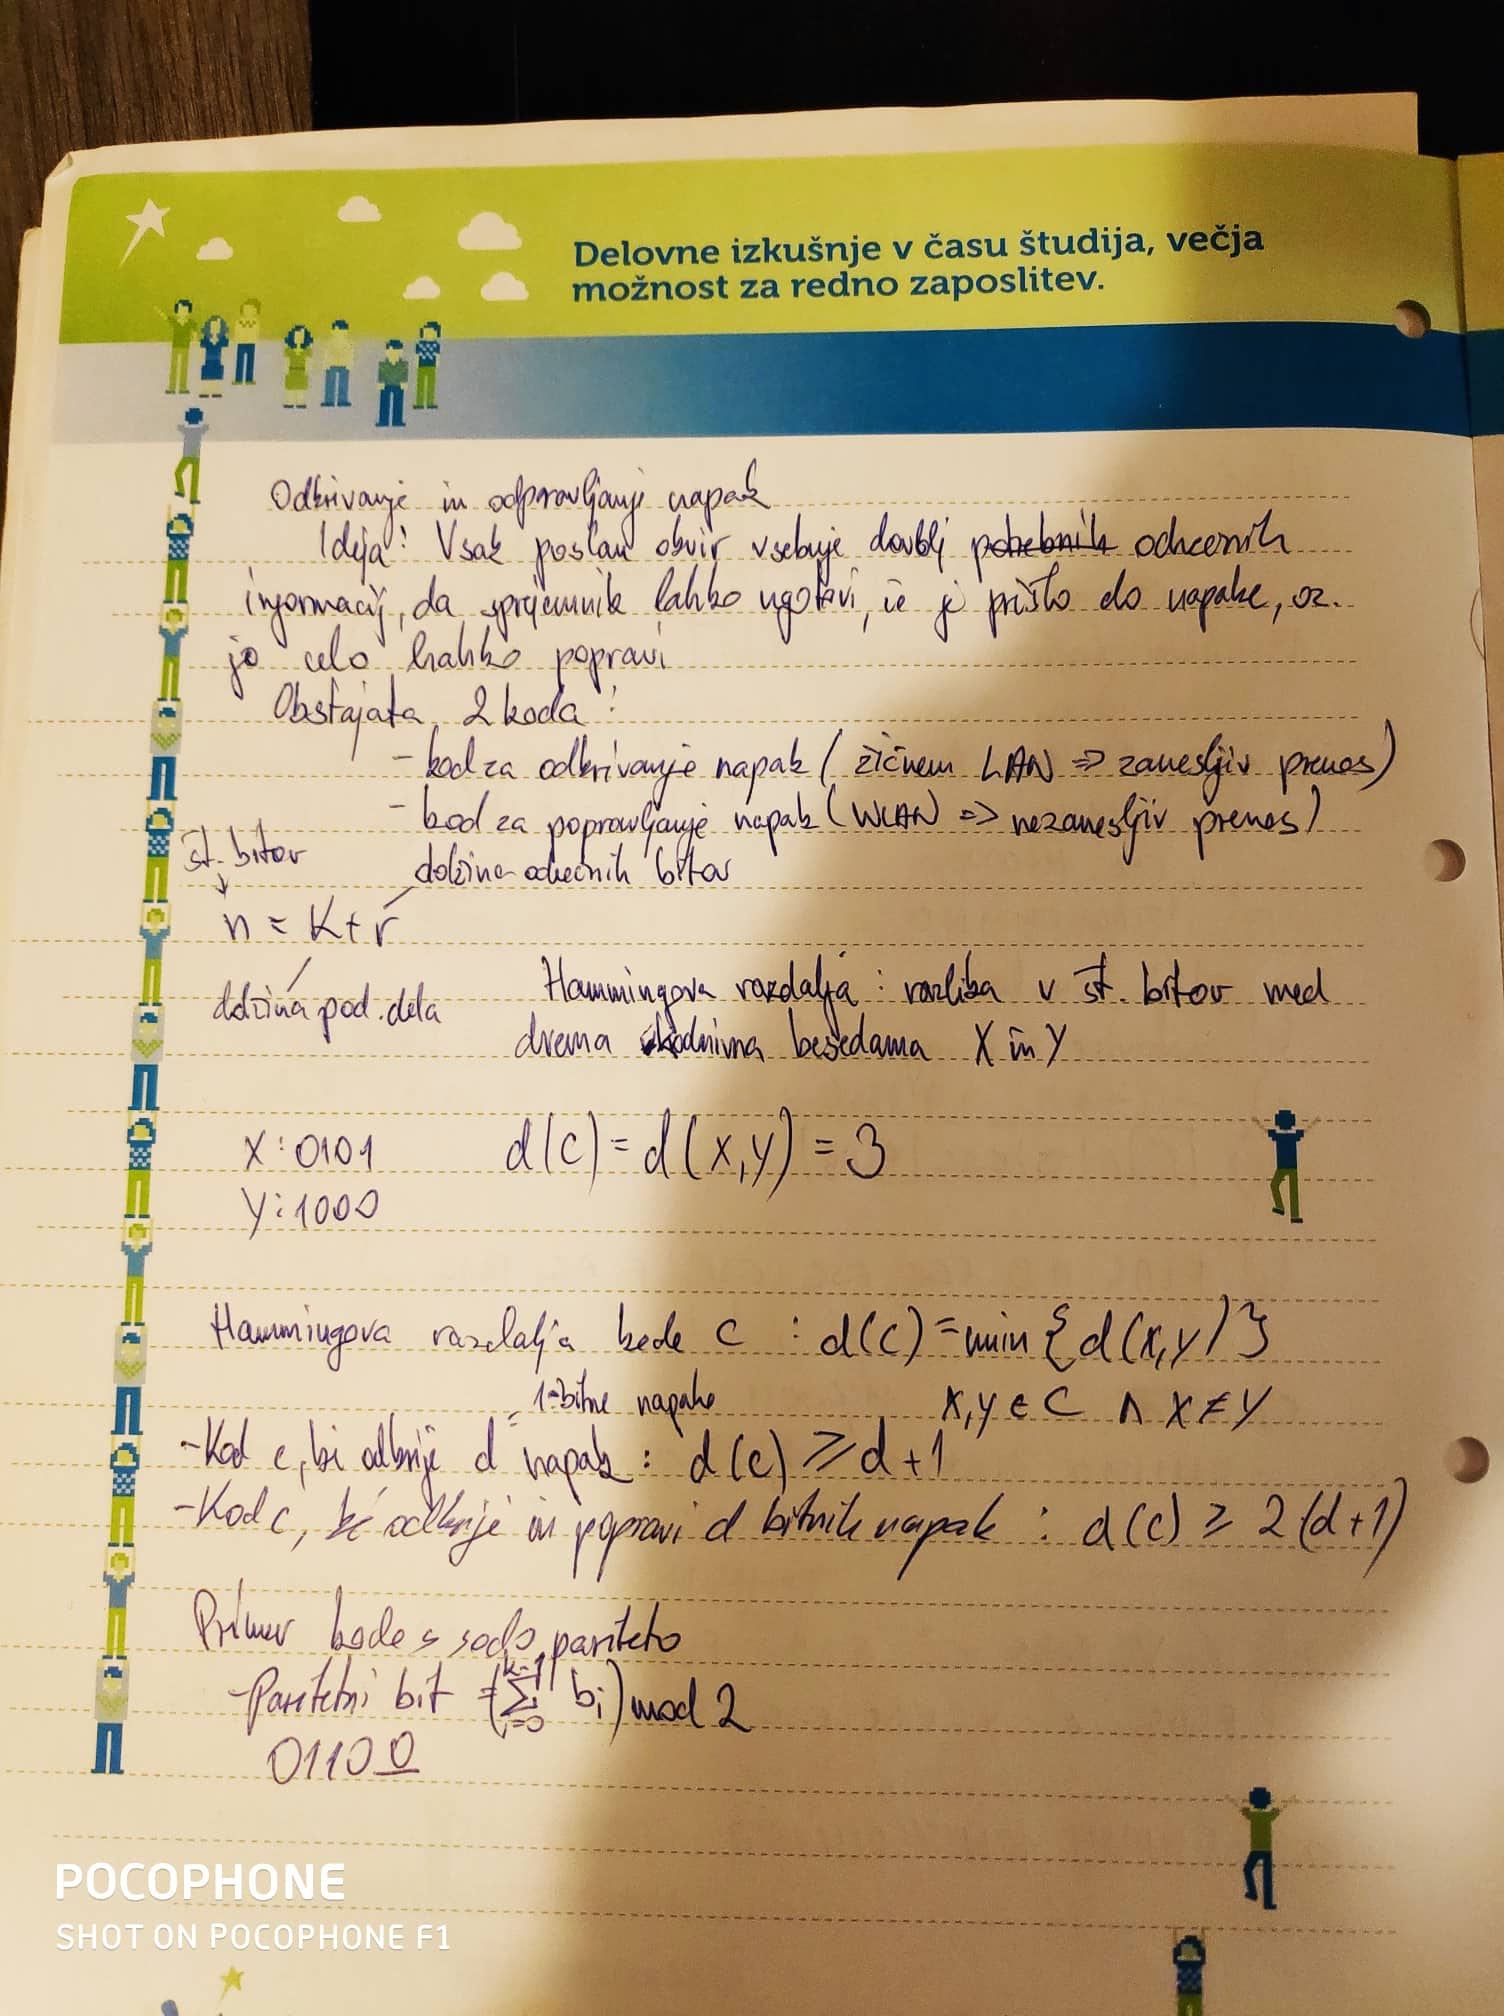 Delovne izkušnje v času študija, večja
možnost za redno zaposlitev.
Odkrivanje in odpravljanje napak
Ideja: Vsak poslan okvir vsebuje dovolj potrebnih odvečnih
informacij, da sprejemnik lahko ugotovi, če je prišlo do napake, oz.
jo celo lahko popravi
Obstajata 2 koda:
- kod za odkrivanje napak (žičnem LAN => zanesljiv prenos)
- kod za popravljanje napak (WLAN => nezanesljiv prenos)
št. bitov
dolžina odvečnih bitov
n = k + r
dolžina pod. dela
Hammingova razdalja: razlika v št. bitov med
dvema kodnima besedama X in Y
X: 0101
d(c) = d(x,y) = 3
Y: 1000
Hammingova razdalja kode C : d(c) = min {d(x,y)}
1-bitne napake
x,y ∈ C ∧ x ≠ y
- Kod c, ki odkrije d napak: d(c) ≥ d+1
- Kod c, ki odkrije in popravi d bitnih napak : d(c) ≥ 2(d+1)
Primer kode s sodo pariteto
- Paritetni bit = (∑ᵢ₌₀ᵏ⁻¹ bi) mod 2
01100
POCOPHONE
SHOT ON POCOPHONE F1